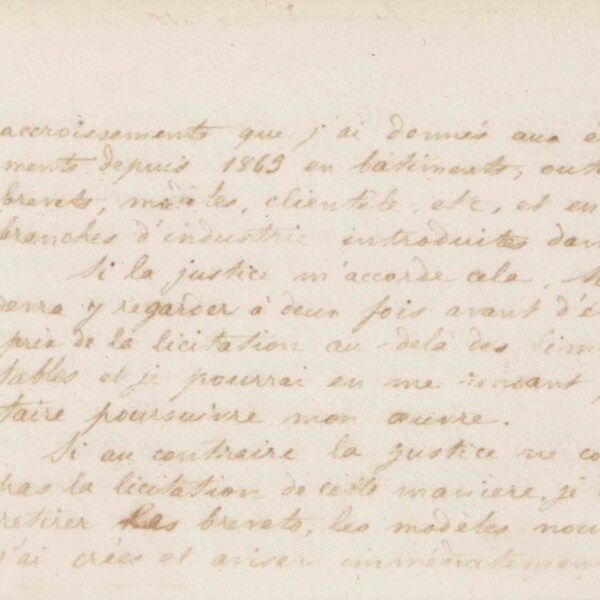 accroissements que j'ai donnés aux é
ments depuis 1869 en bâtiments, out
brevets, modèles, clientèle, etc, et en
branches d'industrie introduites dan
Si la justice m'accorde cela,
devra y regarder à deux fois avant d'é
prix de la licitation au-delà des lim
tables et je pourrai en me rendant
faire poursuivre mon œuvre.
Si au contraire la justice ne co
pas la licitation de cette manière, je
retirer les brevets, les modèles nou
j'ai créés et aviser immédiatement